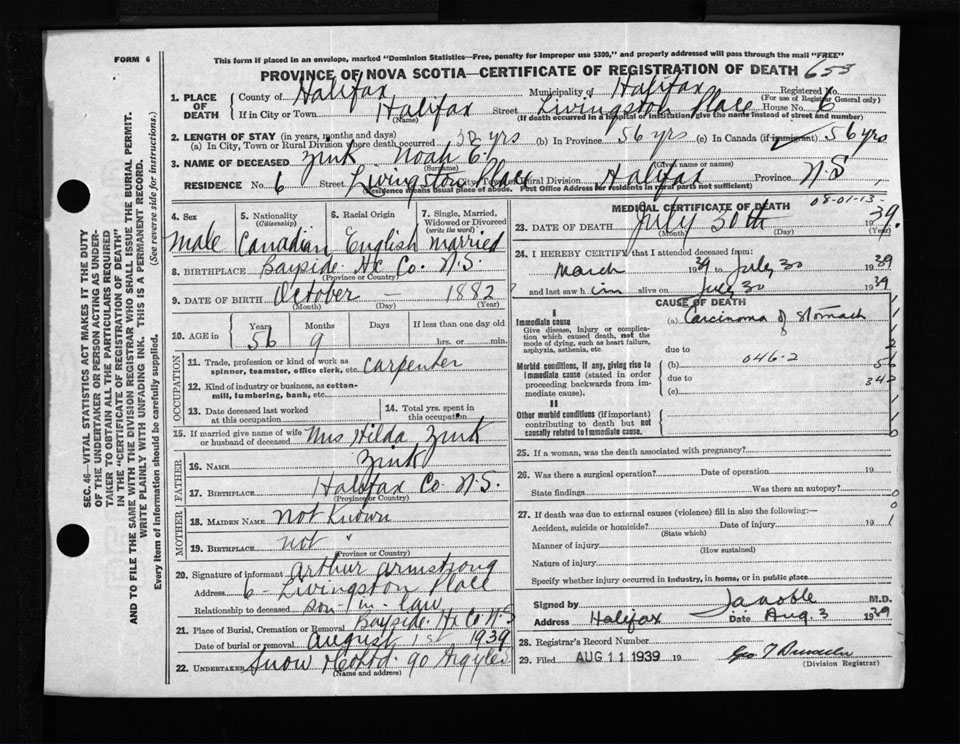 FORM 6
This form if placed in an envelope, marked "Dominion Statistics—Free, penalty for improper use $300," and properly addressed will pass through the mail "FREE"
PROVINCE OF NOVA SCOTIA—CERTIFICATE OF REGISTRATION OF DEATH 653
1. PLACE OF DEATH
County of Halifax Municipality of Halifax Registered No.
(For use of Registrar General only)
If in City or Town Halifax Street Livingston Place House No. 6
(Name) (If death occurred in a hospital or institution, give the name instead of street and number)
2. LENGTH OF STAY (in years, months and days)
(a) In City, Town or Rural Division where death occurred yrs (b) In Province 56 yrs (c) In Canada (if immigrant) 56 yrs
3. NAME OF DECEASED Zink Noah E.
(Surname) (Given name or names)
RESIDENCE No. 6 Street Livingston Place City, Town or Rural Division Halifax Province N.S.
(Residence means usual place of abode. Post Office Address for residents in rural parts not sufficient)
4. Sex
5. Nationality (Citizenship)
6. Racial Origin
7. Single, Married, Widowed or Divorced (write the word)
Male Canadian English married
8. BIRTHPLACE Bayside Hx Co. N.S.
(Province or Country)
9. DATE OF BIRTH October — 1882
(Month) (Day) (Year)
10. AGE in
Years Months Days If less than one day old
56 9 hrs. or min.
OCCUPATION
11. Trade, profession or kind of work as spinner, teamster, office clerk, etc. Carpenter
12. Kind of industry or business, as cotton-mill, lumbering, bank, etc.
13. Date deceased last worked at this occupation
14. Total yrs. spent in this occupation
15. If married give name of wife or husband of deceased Mrs Hilda Zink
FATHER
16. NAME Zink
17. BIRTHPLACE Halifax Co N.S.
(Province or Country)
MOTHER
18. MAIDEN NAME Not Known
19. BIRTHPLACE not "
(Province or Country)
20. Signature of informant Arthur Armstrong
Address 6 - Livingston Place
Relationship to deceased son-in-law
21. Place of Burial, Cremation or Removal Bayside Hx Co N.S
Date of burial or removal August 1st 1939
22. UNDERTAKER Snow 90 Argyle
(Name and address)
MEDICAL CERTIFICATE OF DEATH 08-01-13-
23. DATE OF DEATH July 30th 1939.
(Month) (Day) (Year)
24. I HEREBY CERTIFY that I attended deceased from:
March 1939 to July 30 1939
and last saw him alive on July 30 1939
CAUSE OF DEATH
I
Immediate cause
Give disease, injury or complication which caused death, not the mode of dying, such as heart failure, asphyxia, asthenia, etc.
(a) Carcinoma of Stomach
due to
046.2
Morbid conditions, if any, giving rise to immediate cause (stated in order proceeding backwards from immediate).
(b)
56
due to
342
(c)
II
Other morbid conditions (if important) contributing to death but not causally related to immediate cause.
25. If a woman, was the death associated with pregnancy?
26. Was there a surgical operation? Date of operation 19
State findings Was there an autopsy?
27. If death was due to external causes (violence) fill in also the following:—
Accident, suicide or homicide? Date of injury 19
(State which)
Manner of injury
(How sustained)
Nature of injury
Specify whether injury occurred in industry, in home, or in public place
Signed by M.D.
Address Halifax Date Aug. 3 1939
28. Registrar's Record Number
29. Filed AUG 11 1939 19
(Division Registrar)
SEC. 46—VITAL STATISTICS ACT MAKES IT THE DUTY
OF THE UNDERTAKER OR PERSON ACTING AS UNDER-
TAKER TO OBTAIN ALL THE PARTICULARS REQUIRED
IN THE "CERTIFICATE OF REGISTRATION OF DEATH"
AND TO FILE THE SAME WITH THE DIVISION REGISTRAR WHO SHALL ISSUE THE BURIAL PERMIT.
WRITE PLAINLY WITH UNFADING INK. THIS IS A PERMANENT RECORD.
Every item of information should be carefully supplied. (See reverse side for instructions.)